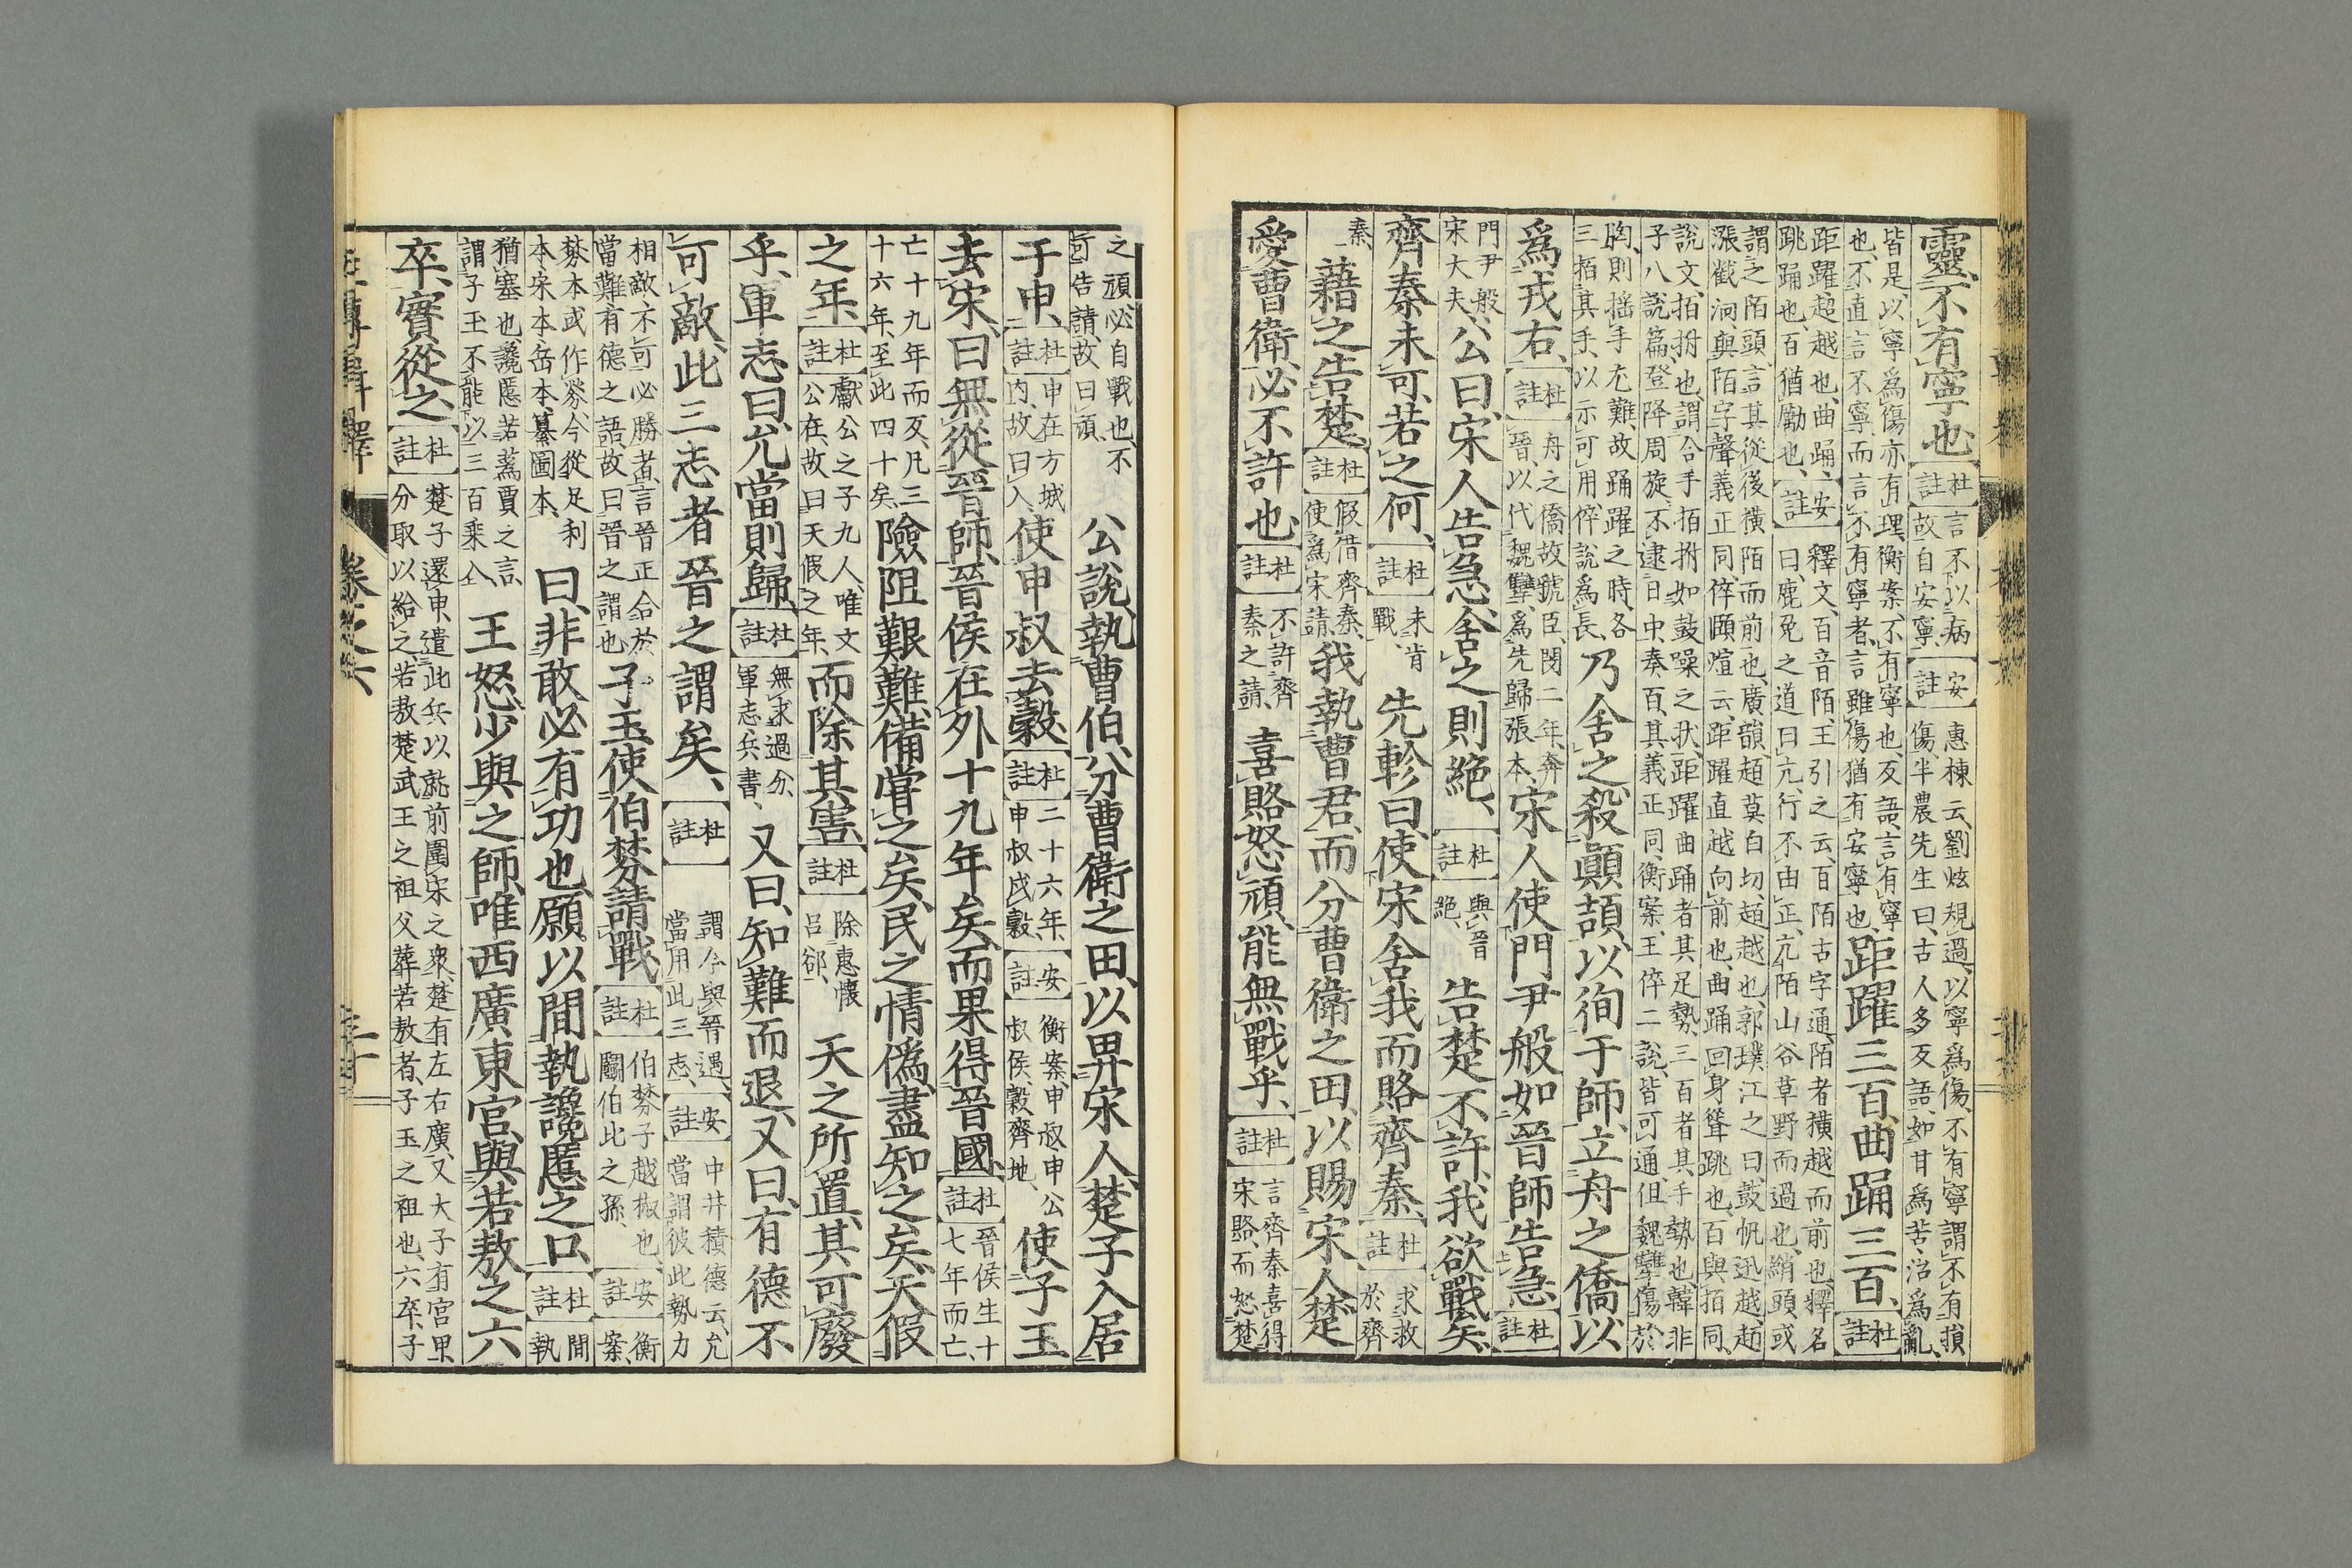 靈不有寧也杜註言不以病故自安寧安註惠棟云劉炫規過以寧爲傷不有寧謂不有損傷半農先生曰古人多反語如甘爲苦治爲亂
皆是以寧爲傷亦有理衡案不有寧也反語言有寧也不直言不寧而言不有寧者言雖傷猶有安寧也距躍三百曲踊三百杜註
距躍超越也曲踊跳踊也百猶勵也安註釋文百音陌王引之云百陌古字通陌者橫越而前也釋名曰鹿兔之道曰亢行不由正亢陌山谷草野而過也綃頭或
謂之陌頭言其從後橫陌而前也廣韻趏莫白切趏越也郭璞江之曰鼓帆迅越趏漲截泂與陌字聲義正同倅頤煊云距躍直越向前也曲踊回身聳跳也百與拍同
說文拍拊也謂合手拍拊如鼓噪之狀距躍曲踊者其足勢三百者其手勢也韓非子八說篇登降周旋不逮日中奏百其義正同衡案王倅二說皆可通但魏犫傷於
胸則搖手尤難故踊躍之時各三拍其手以示可用倅說爲長乃舍之殺顚頡以徇于師立舟之僑以
爲戎右杜註舟之僑故虢臣閔二年奔晉以代魏犫爲先歸張本宋人使門尹般如晉師告急杜註
門尹般宋大夫公曰宋人告急舍之則絶杜註與晉絶告楚不許我欲戰矣
齊秦未可若之何杜註未肯戰先軫曰使宋舍我而賂齊秦杜註求救於齊
秦藉之告楚杜註假借齊秦使爲宋請我執曹君而分曹衛之田以賜宋人楚
愛曹衛必不許也杜註不許齊秦之請喜賂怒頑能無戰乎杜註言齊秦喜得宋賂而怒楚
之頑必自戰也不可告請故曰頑公說執曹伯分曹衛之田以畀宋人楚子入居
于申杜註申在方城内故曰入使申叔去穀杜註二十六年申叔戍穀安註衡案申叔申公叔侯穀齊地使子玉
去宋曰無從晉師晉侯在外十九年矣而果得晉國杜註晉侯生十七年而亡
亡十九年而反凡三十六年至此四十矣險阻艱難備嘗之矣民之情僞盡知之矣天假
之年杜註獻公之子九人唯文公在故曰天假之年而除其害杜註除惠懷呂郤天之所置其可廢
乎軍志曰允當則歸杜註無求過分軍志兵書又曰知難而退又曰有德不
可敵此三志者晉之謂矣杜註謂今與晉遇當用此三志安註中井積德云允當謂彼此勢力
相敵不可必勝者言晉正合於當難有德之語故曰晉之謂也子玉使伯棼請戰杜註伯棼子越椒也鬭伯比之孫安註衡案
棼本或作㷊今從足利本宋本岳本纂圖本曰非敢必有功也願以間執讒慝之口杜註間執
猶塞也讒慝若蔿賈之言謂子玉不能以三百乘入王怒少與之師唯西廣東宮與若敖之六
卒實從之杜註楚子還申遣此兵以就前圍宋之衆楚有左右廣又大子有宮甲分取以給之若敖楚武王之祖父葬若敖者子玉之祖也六卒子